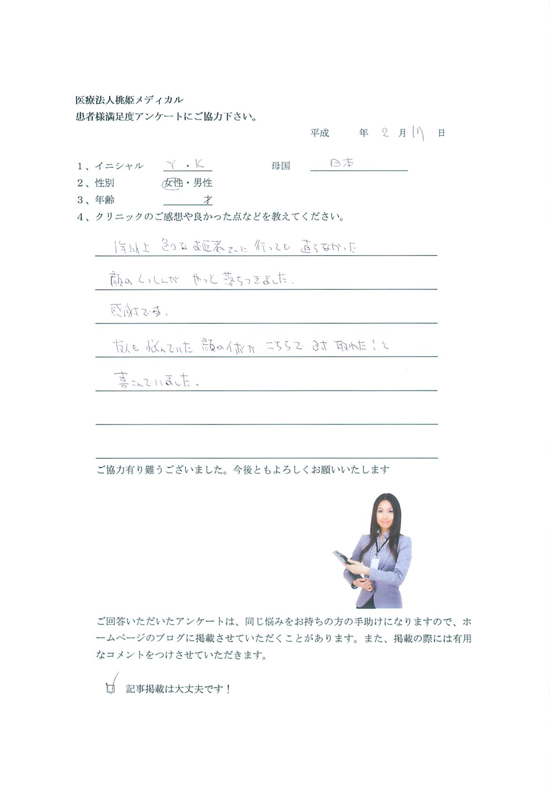 医療法人桃姫メディカル
患者様満足度アンケートにご協力下さい。
平成 年 2 月 17 日
1、イニシャル Y・K 母国 日本
2、性別 女性・男性
3、年齢 才
4、クリニックのご感想や良かった点などを教えてください。
1年以上 色々な お医者さんに 行っても 直らなかった
顔の しっしんが やっと 落ちつきました。
感謝です。
友人も 悩んでいた 顔の イボが こちらで 取れた！と
喜こんでいました。
ご協力有り難うございました。今後ともよろしくお願いいたします
ご回答いただいたアンケートは、同じ悩みをお持ちの方の手助けになりますので、ホ
ームページのブログに掲載させていただくことがあります。また、掲載の際には有用
なコメントをつけさせていただきます。
記事掲載は大丈夫です！